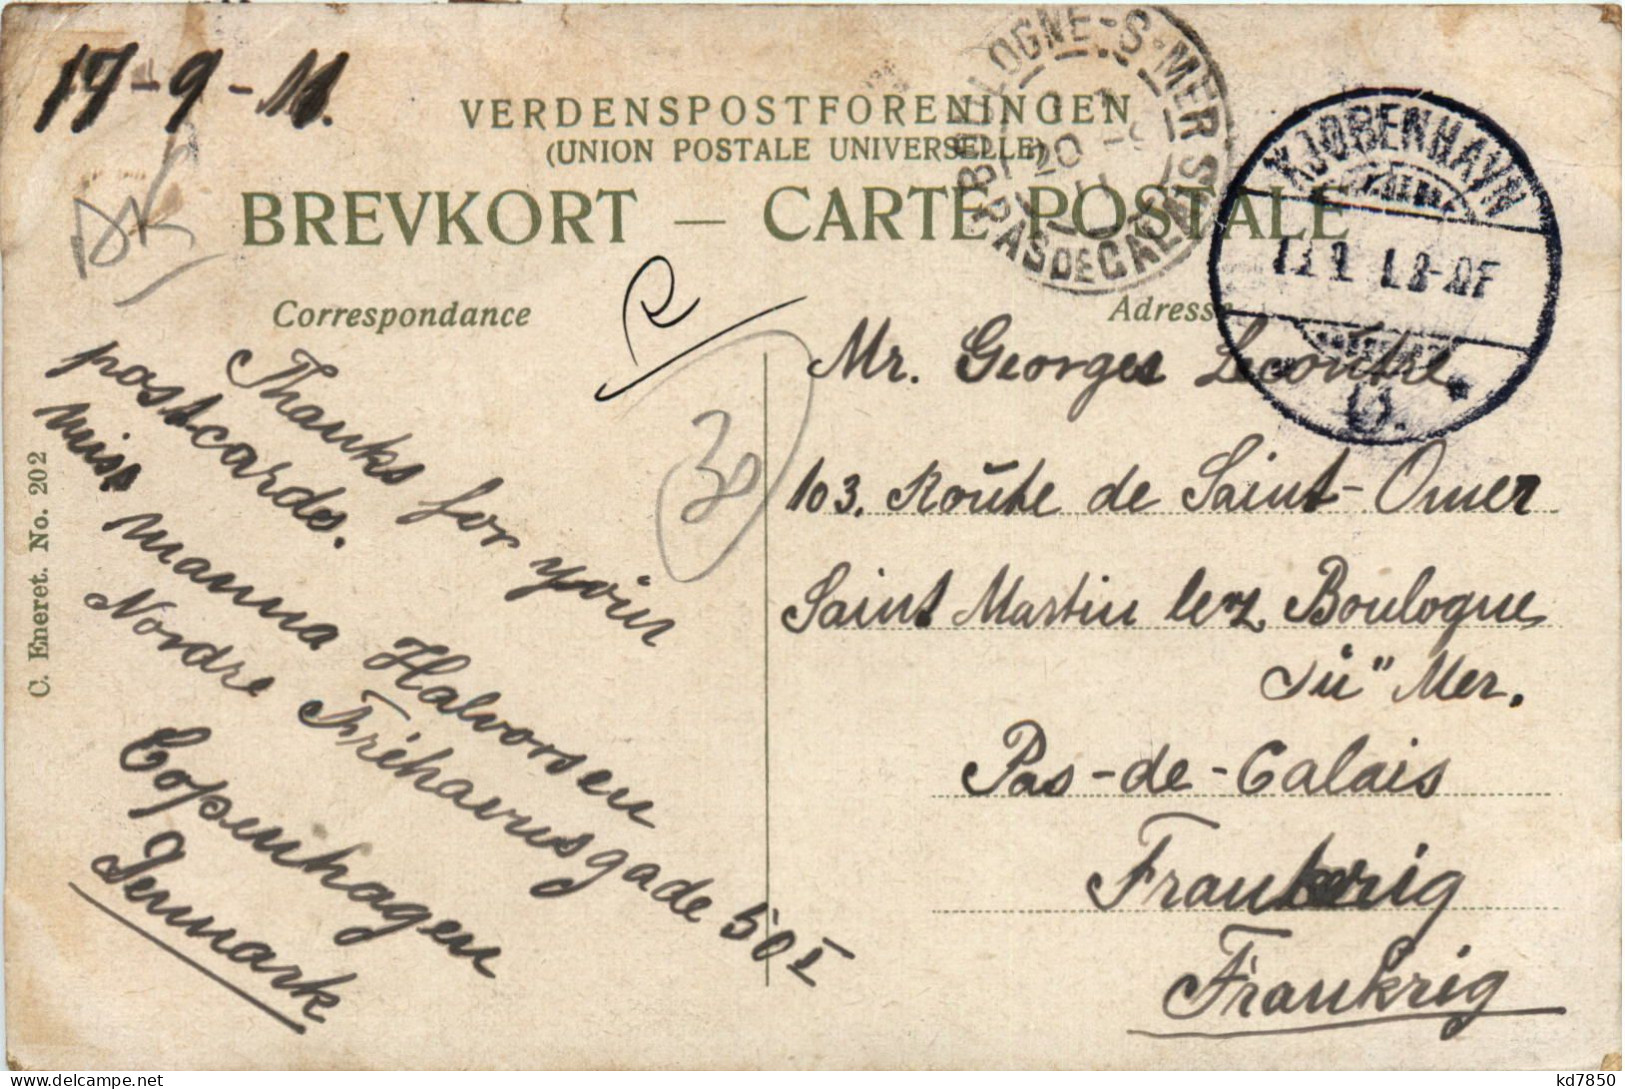 17-9-11.
VERDENSPOSTFORENINGEN
(UNION POSTALE UNIVERSELLE)
BREVKORT — CARTE POSTALE
BOULOGNE-S-MER
PAS DE CALAIS
20 -9
KJØBENHAVN
DK
R
30
Correspondance
Adresse
Thanks for your
postcards.
miss manna Halvorsen
Nordre Frihavnsgade 50 I
Copenhagen
Denmark
Mr. Georges Lecoutre
103. Route de Saint-Omer
Saint Martin lez Boulogne
Su" Mer.
Pas-de-Calais
Frankrig
Frankrig
C. Eneret. No. 202
kd7850